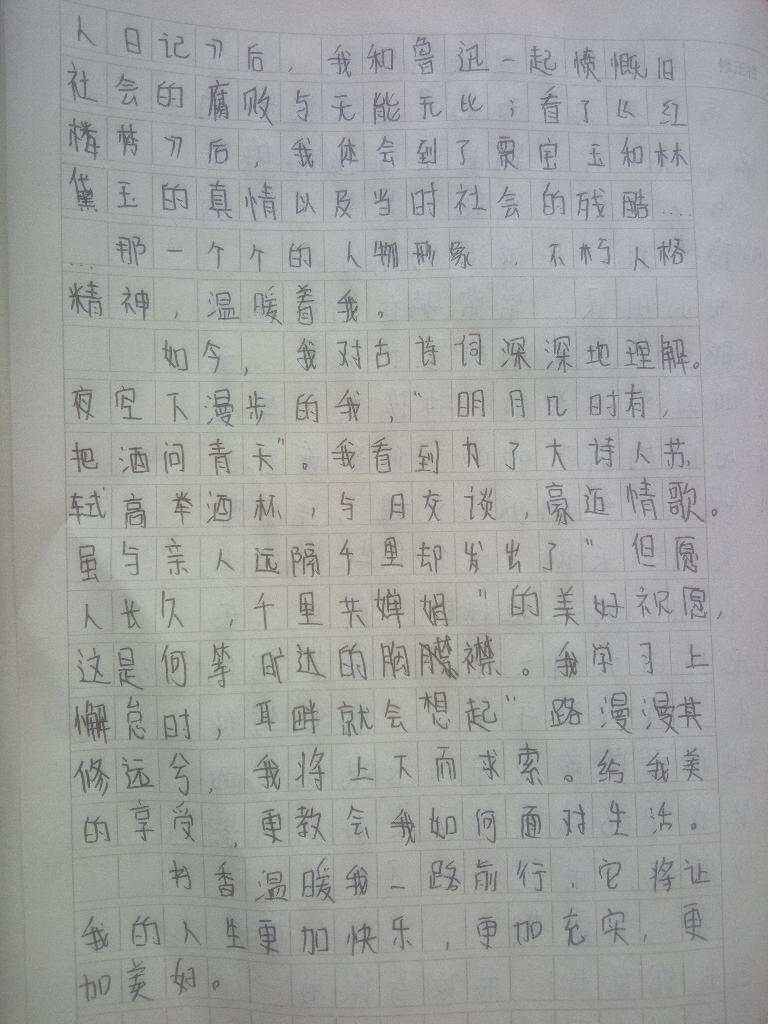 人日记》后，我和鲁迅一起愤慨旧
社会的腐败与无能无比；看了《红
楼梦》后，我体会到了贾宝玉和林
黛玉的真情以及当时社会的残酷…
…那一个个的人物形象，不朽人格
精神，温暖着我。
如今，我对古诗词深深地理解。
夜空下漫步的我，“明月几时有，
把酒问青天”。我看到了大诗人苏
轼高举酒杯，与月交谈，豪迈情歌。
虽与亲人远隔千里却发出了“但愿
人长久，千里共婵娟”的美好祝愿，
这是何等旷达的胸襟。我学习上
懈怠时，耳畔就会想起“路漫漫其
修远兮，我将上下而求索。给我美
的享受，更教会我如何面对生活。
书香温暖我一路前行，它将让
我的人生更加快乐，更加充实，更
加美好。